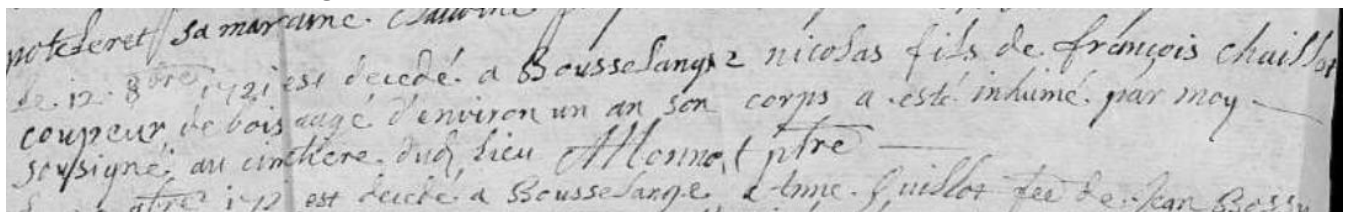 sa maraine
le 12. 8bre 1721 est decedé a Bousselange nicolas fils de françois chaillot
coupeur de bois augé d'environ un an son corps a esté inhumé par moy
soussigné au cimetiere dud lieu AMonnot ptre
est decedé a Bousselange Anne Guillot fee de Jean Bossu